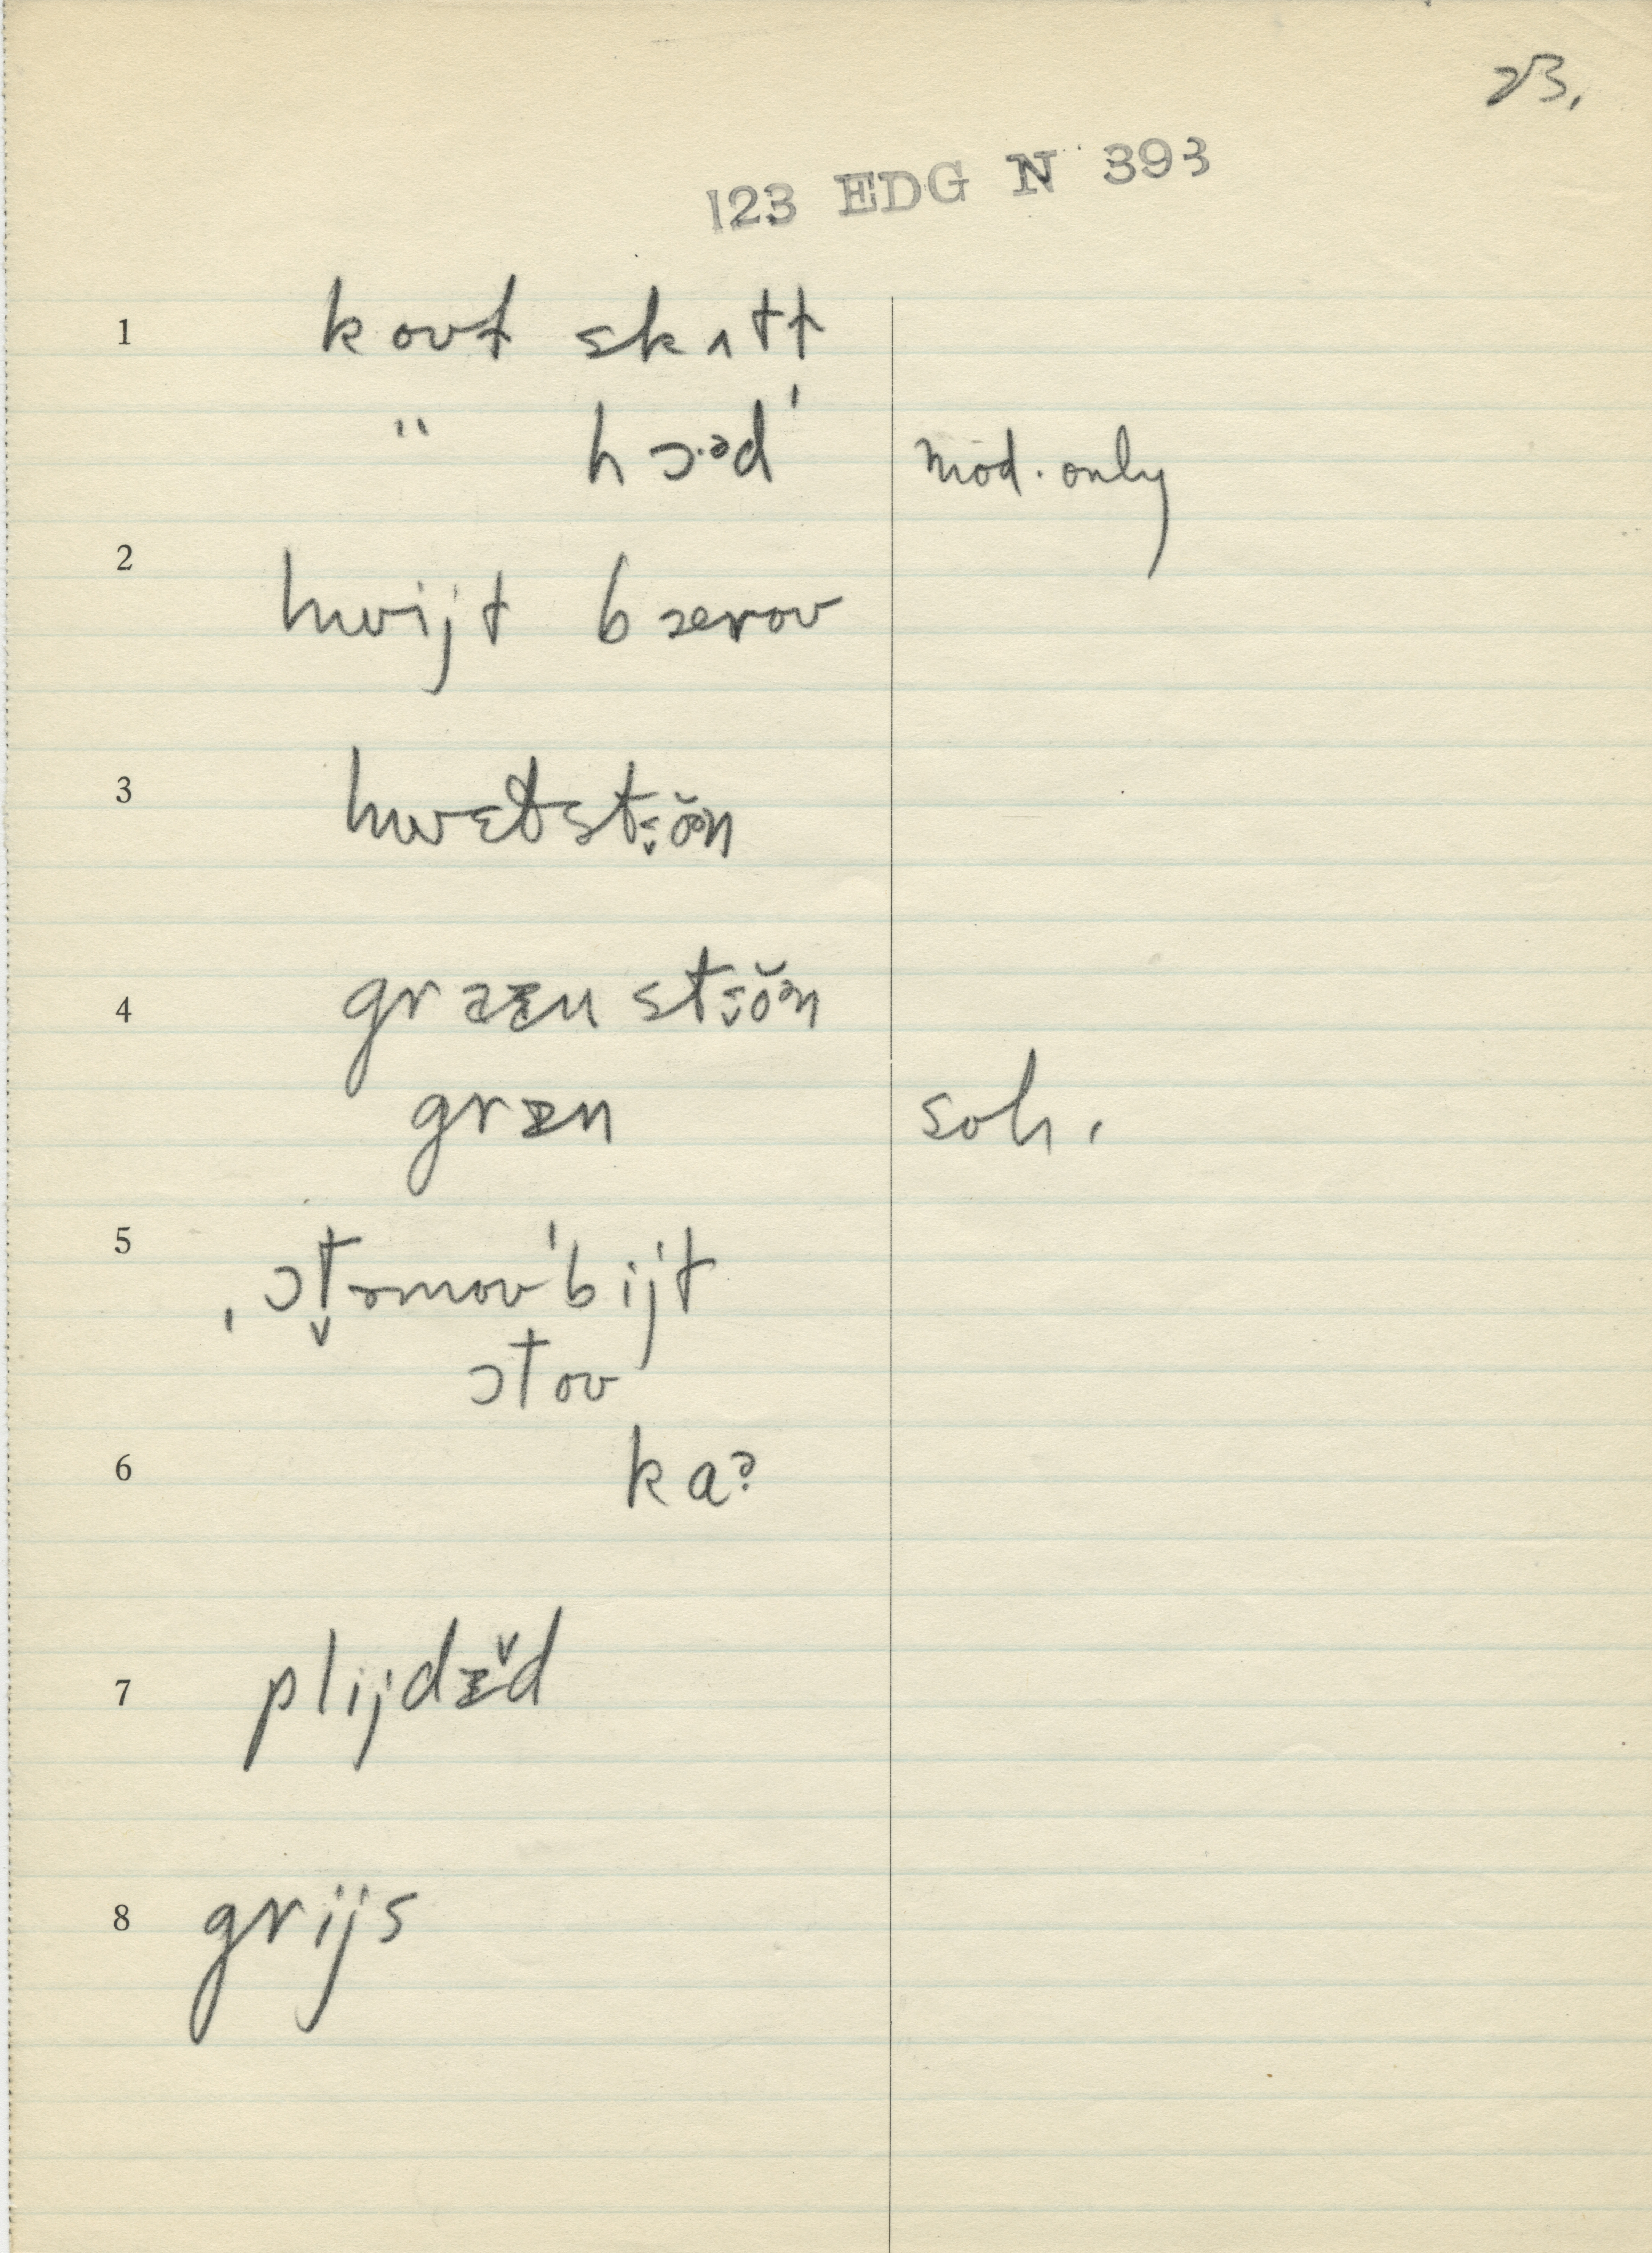 23.
123 EDG N 393
1 kout skʌtt
" hɔ·əd' mod. only
2 hwijt bɜrou
3 hwɛtstŏən
4 stŏən
soh.
5 ˌɔt̬əmou'bijt
ɔtou
6 kaɂ
7 plijdɪ̌d
8 grijs